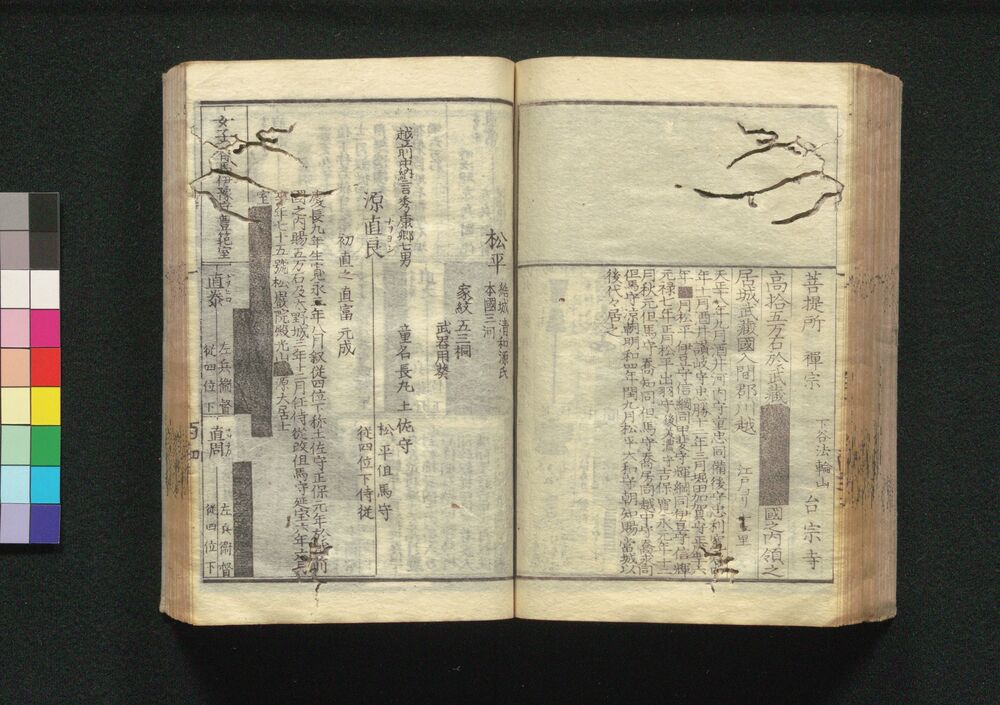 菩提所 禅宗 下谷法輪山 台宗寺
高拾五万石於武蔵 國之内領之
居城武蔵國入間郡川越 江戸ヨリ 里
天正 年九月酒井河内守重忠同備後守忠利
年十一月酒井讃岐守忠勝十二年三月堀田加賀守正 年六
月松平伊豆守信綱同甲斐守輝綱同伊豆守信輝
元禄七年正月松平出羽守後美濃守吉保宝永元年十二
月秋元但馬守喬知同但馬守喬房同越中守喬求同
但馬守凉朝明和四年閏九月松平大和守朝知賜當城以
後代々居之
松平 結城 清和源氏
本國三河
家紋 五三桐
武器用葵
越前中納言秀康卿七男
源直良 ナヲヨシ 童名長丸 土佐守
松平但馬守
従四位下侍従
初直之 直富 元成
慶長九年生寛永三年八月叙従四位下称土佐守正保元年於越前
國之内賜五万石及大野城三年十二月任侍従改但馬守延宝六年六月
年七十五號松巌院殿光山 源大居士
室
女子 豊範室
直泰 左兵衛督
従四位下
直周 左兵衛督
従四位下